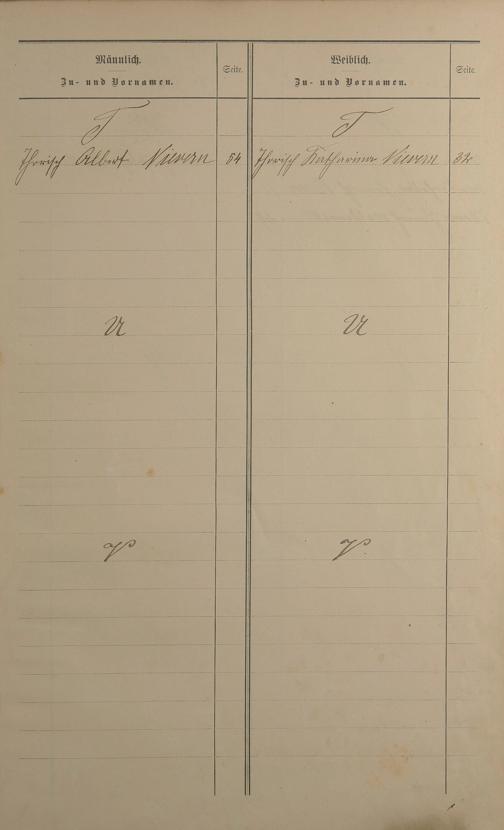 Männlich.
Zu- und Vornamen.
Seite.
Weiblich.
Zu- und Vornamen.
Seite.
T
T
Thorisch Albert Nievern 54
Thorisch Katharina Nievern 32
U
U
V
V